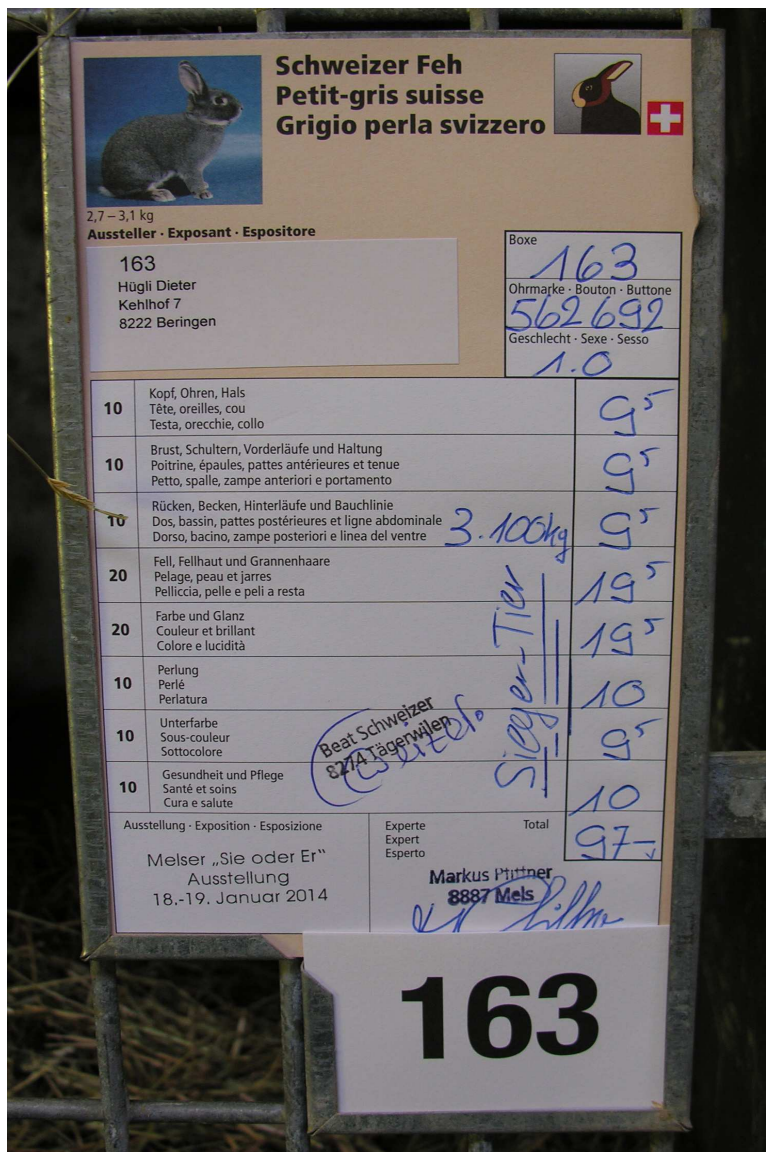 Schweizer Feh
Petit-gris suisse
Grigio perla svizzero
2,7 – 3,1 kg
Aussteller · Exposant · Espositore
163
Hügli Dieter
Kehlhof 7
8222 Beringen
Boxe
163
Ohrmarke · Bouton · Buttone
562 692
Geschlecht · Sexe · Sesso
1.0
10 Kopf, Ohren, Hals
Tête, oreilles, cou
Testa, orecchie, collo
9⁵
10 Brust, Schultern, Vorderläufe und Haltung
Poitrine, épaules, pattes antérieures et tenue
Petto, spalle, zampe anteriori e portamento
9⁵
10 Rücken, Becken, Hinterläufe und Bauchlinie
Dos, bassin, pattes postérieures et ligne abdominale
Dorso, bacino, zampe posteriori e linea del ventre
3.100kg
9⁵
20 Fell, Fellhaut und Grannenhaare
Pelage, peau et jarres
Pelliccia, pelle e peli a resta
19⁵
20 Farbe und Glanz
Couleur et brillant
Colore e lucidità
19⁵
10 Perlung
Perlé
Perlatura
10
10 Unterfarbe
Sous-couleur
Sottocolore
9⁵
10 Gesundheit und Pflege
Santé et soins
Cura e salute
10
Sieger-Tier
Beat Schweizer
8274 Tägerwilen
Ausstellung · Exposition · Esposizione
Melser „Sie oder Er"
Ausstellung
18.-19. Januar 2014
Experte
Expert
Esperto
Total
97-
Markus
8887 Mels
163